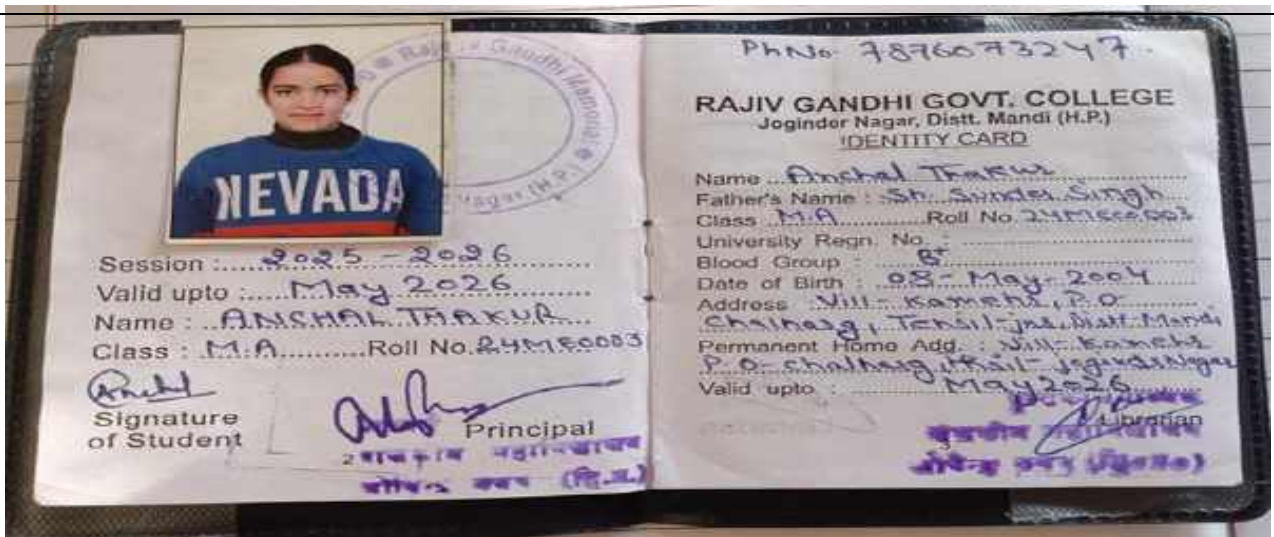 Rajiv Gandhi Memorial
(H.P.)
NEVADA
Session : 2025 - 2026
Valid upto : May 2026
Name : ANCHAL THAKUR
Class : M.A Roll No. 24MECO003
Signature
of Student
Principal
(हि.प्र.)
Ph No. 7876073247.
RAJIV GANDHI GOVT. COLLEGE
Joginder Nagar, Distt. Mandi (H.P.)
IDENTITY CARD
Name Anchal Thakur
Father's Name : Sh. Sunder Singh
Class M.A Roll No. 24MECO003
University Regn. No. :
Blood Group : B+
Date of Birth : 08 - May - 2004
Address Vill - Kamehr, P.O-
Tehsil - Distt. Mandi
Permanent Home Add. : Vill - Kamehr
P.O- Tehsil - Joginder Nagar
Valid upto : May 2026
Librarian